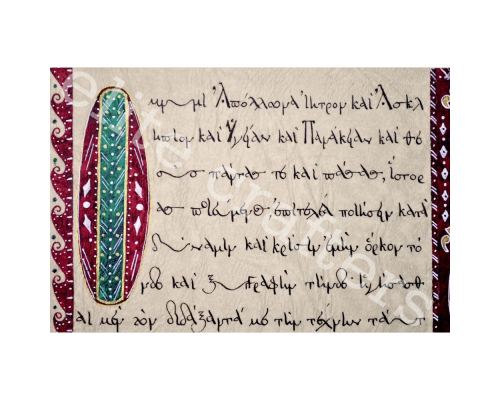 μνυμι Ἀπόλλωνα ἰητρὸν καὶ Ἀσκλ
ηπιὸν καὶ Ὑγείαν καὶ Πανάκειαν καὶ θε
οὺς πάντας τε καὶ πάσας, ἵστορ
ας ποιεύμενος, ἐπιτελέα ποιήσειν κατὰ
δύναμιν καὶ κρίσιν ἐμὴν ὅρκον τό
νδε καὶ ξυγγραφὴν τήνδε· ἡγήσασθ
αι μὲν τὸν διδάξαντά με τὴν τέχνην ταύτ
elite crafters